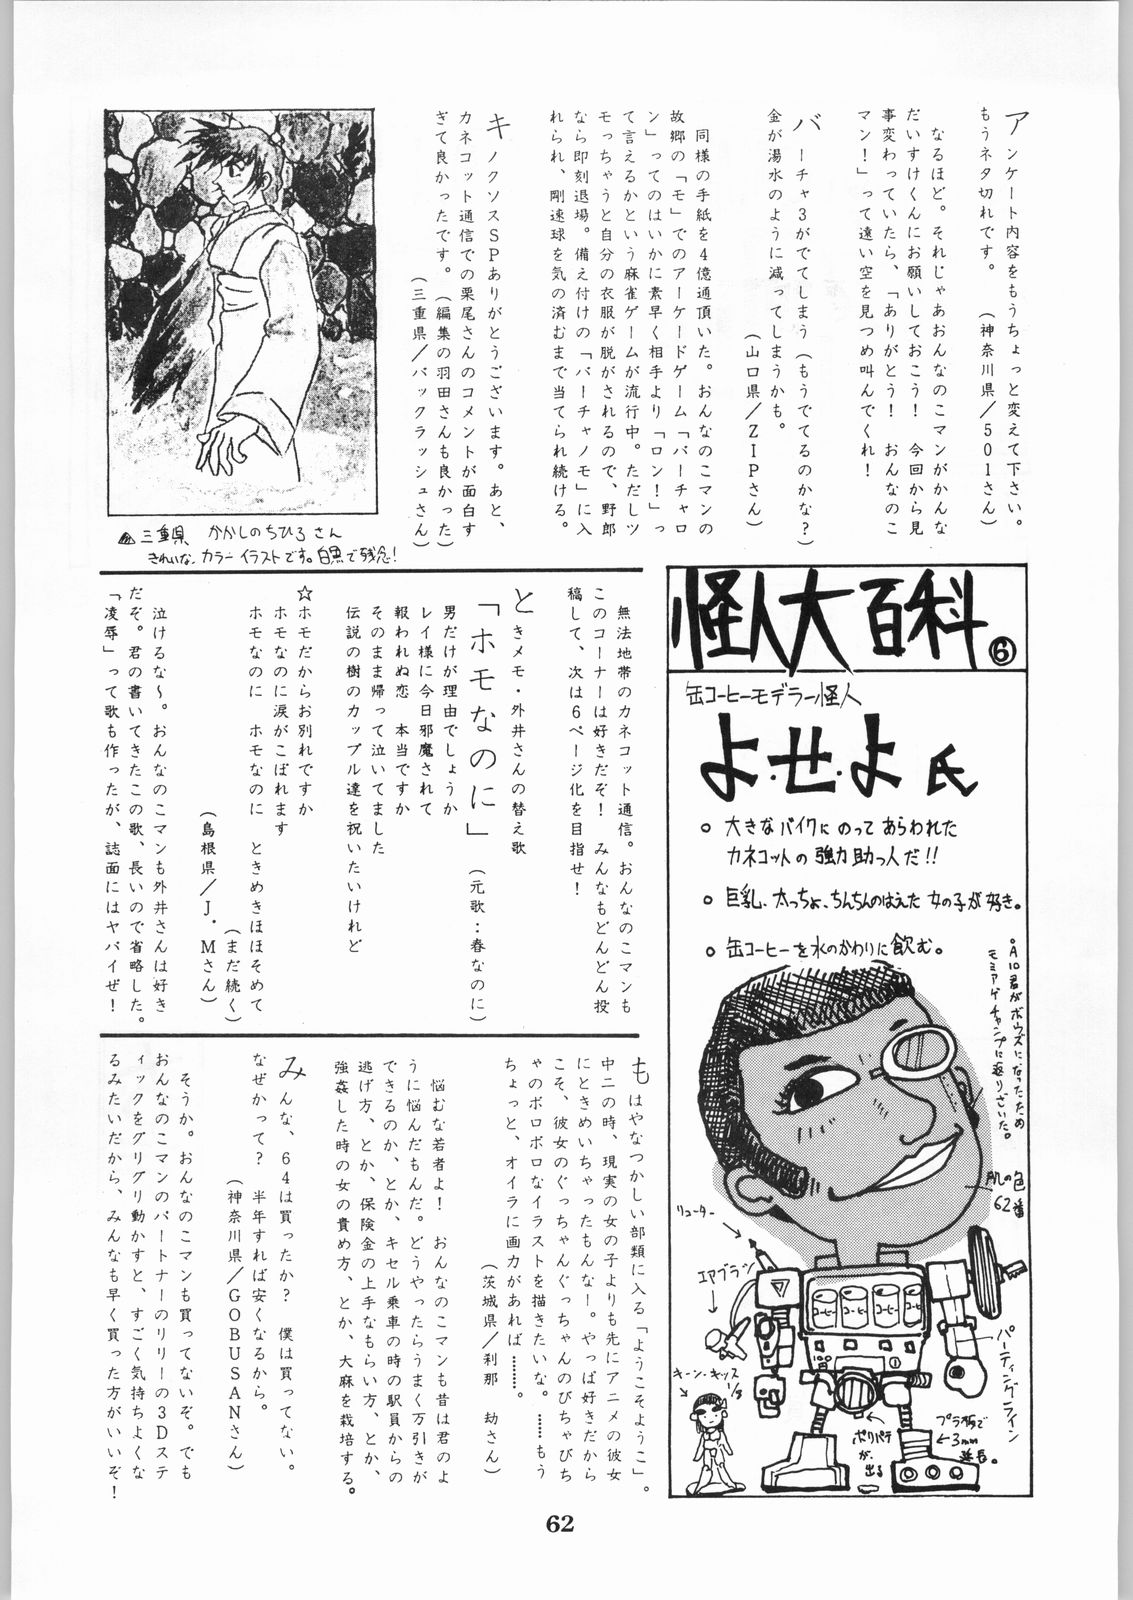 アンケート内容をもうちょっと変えて下さい。
もうネタ切れです。　（神奈川県／501さん）
なるほど。それじゃあおんなのこマンがかんな
だいすけくんにお願いしておこう！　今回から見
事変わっていたら、「ありがとう！　おんなのこ
マン！」って遠い空を見つめ叫んでくれ！
バーチャ3がでてしまう（もうでてるのかな？）
金が湯水のように減ってしまうかも。
（山口県／ZIPさん）
同様の手紙を4億通頂いた。おんなのこマンの
故郷の「モ」でのアーケードゲーム「バーチャロ
ン」ってのはいかに素早く相手より「ロン！」っ
て言えるかという麻雀ゲームが流行中。ただしツ
モっちゃうと自分の衣服が脱がされるので、野郎
なら即刻退場。備え付けの「バーチャノモ」に入
れられ、剛速球を気の済むまで当てられ続ける。
キノクソスSPありがとうございます。あと、
カネコット通信での栗尾さんのコメントが面白す
ぎて良かったです。（編集の羽田さんも良かった）
（三重県／バックラッシュさん）
三重県　かかしのちひろさん
きれいな、カラーイラストです。白黒で残念！
怪人大百科⑥
缶コーヒーモデラー怪人
よ・せ・よ氏
○ 大きなバイクにのってあらわれた
カネコットの強力助っ人だ！！
○ 巨乳、太っちょ、ちんちんのはえた女の子が好き。
○ 缶コーヒーを水のかわりに飲む。
○A10君がボウズになったため
モミアゲチャンプに返りざいた。
肌の色
62番
リューター
エアブラシ
コーヒー
コーヒー
コーヒー
コーヒー
キーン・キッス
1/8
パーティングライン
プラ板で
3mm
延長。
ポリパテ
が、
出る
無法地帯のカネコット通信。おんなのこマンも
このコーナーは好きだぞ！　みんなもどんどん投
稿して、次は6ページ化を目指せ！
ときメモ・外井さんの替え歌
「ホモなのに」（元歌：春なのに）
男だけが理由でしょうか
レイ様に今日邪魔されて
報われぬ恋　本当ですか
そのまま帰って泣いてました
伝説の樹のカップル達を祝いたいけれど
☆ホモだからお別れですか
ホモなのに涙がこぼれます
ホモなのに　ホモなのに　ときめきほほそめて
（まだ続く）
（島根県／J．Mさん）
泣けるな～。おんなのこマンも外井さんは好き
だぞ。君の書いてきたこの歌、長いので省略した。
「凌辱」って歌も作ったが、誌面にはヤバイぜ！
もはやなつかしい部類に入る「ようこそようこ」。
中二の時、現実の女の子よりも先にアニメの彼女
にときめいちゃったもんなー。やっぱ好きだから
こそ、彼女のぐっちゃんぐっちゃんのびちゃびち
ゃのボロボロなイラストを描きたいな。……もう
ちょっと、オイラに画力があれば……。
（茨城県／刹那　劫さん）
悩むな若者よ！　おんなのこマンも昔は君のよ
うに悩んだもんだ。どうやったらうまく万引きが
できるのか、とか、キセル乗車の時の駅員からの
逃げ方、とか、保険金の上手なもらい方、とか、
強姦した時の女の責め方、とか、大麻を栽培する。
みんな、64は買ったか？　僕は買ってない。
なぜかって？　半年すれば安くなるから。
（神奈川県／GOBUSANさん）
そうか。おんなのこマンも買ってないぞ。でも
おんなのこマンのパートナーのリリーの3Dステ
ィックをグリグリ動かすと、すごく気持ちよくな
るみたいだから、みんなも早く買った方がいいぞ！
62